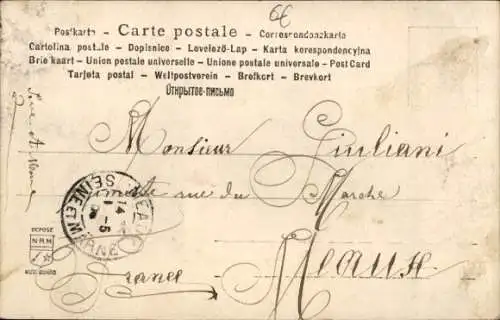 6€
Postkarte – Carte postale – Correspondenzkarte
Cartolina postale – Dopisnice – Levelező-Lap – Karta korespondencyjna
Briefkaart – Union postale universelle – Unione postale universale – Post Card
Tarjeta postal – Weltpostverein – Brefkort – Brevkort
Открытое-письмо
Monsieur Giuliani
rue du Marché
Meaux
France
MEAUX
14
1 - 5
SEINE ET MARNE
DÉPOSÉ
N.R.M.